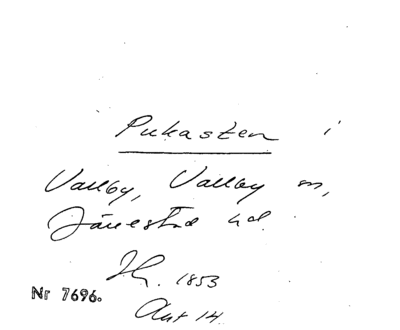 Pukasten i
Vallby, Vallby sn,
Järrestad hd.
Th. 1853
Nr 7696.
Akt 14.